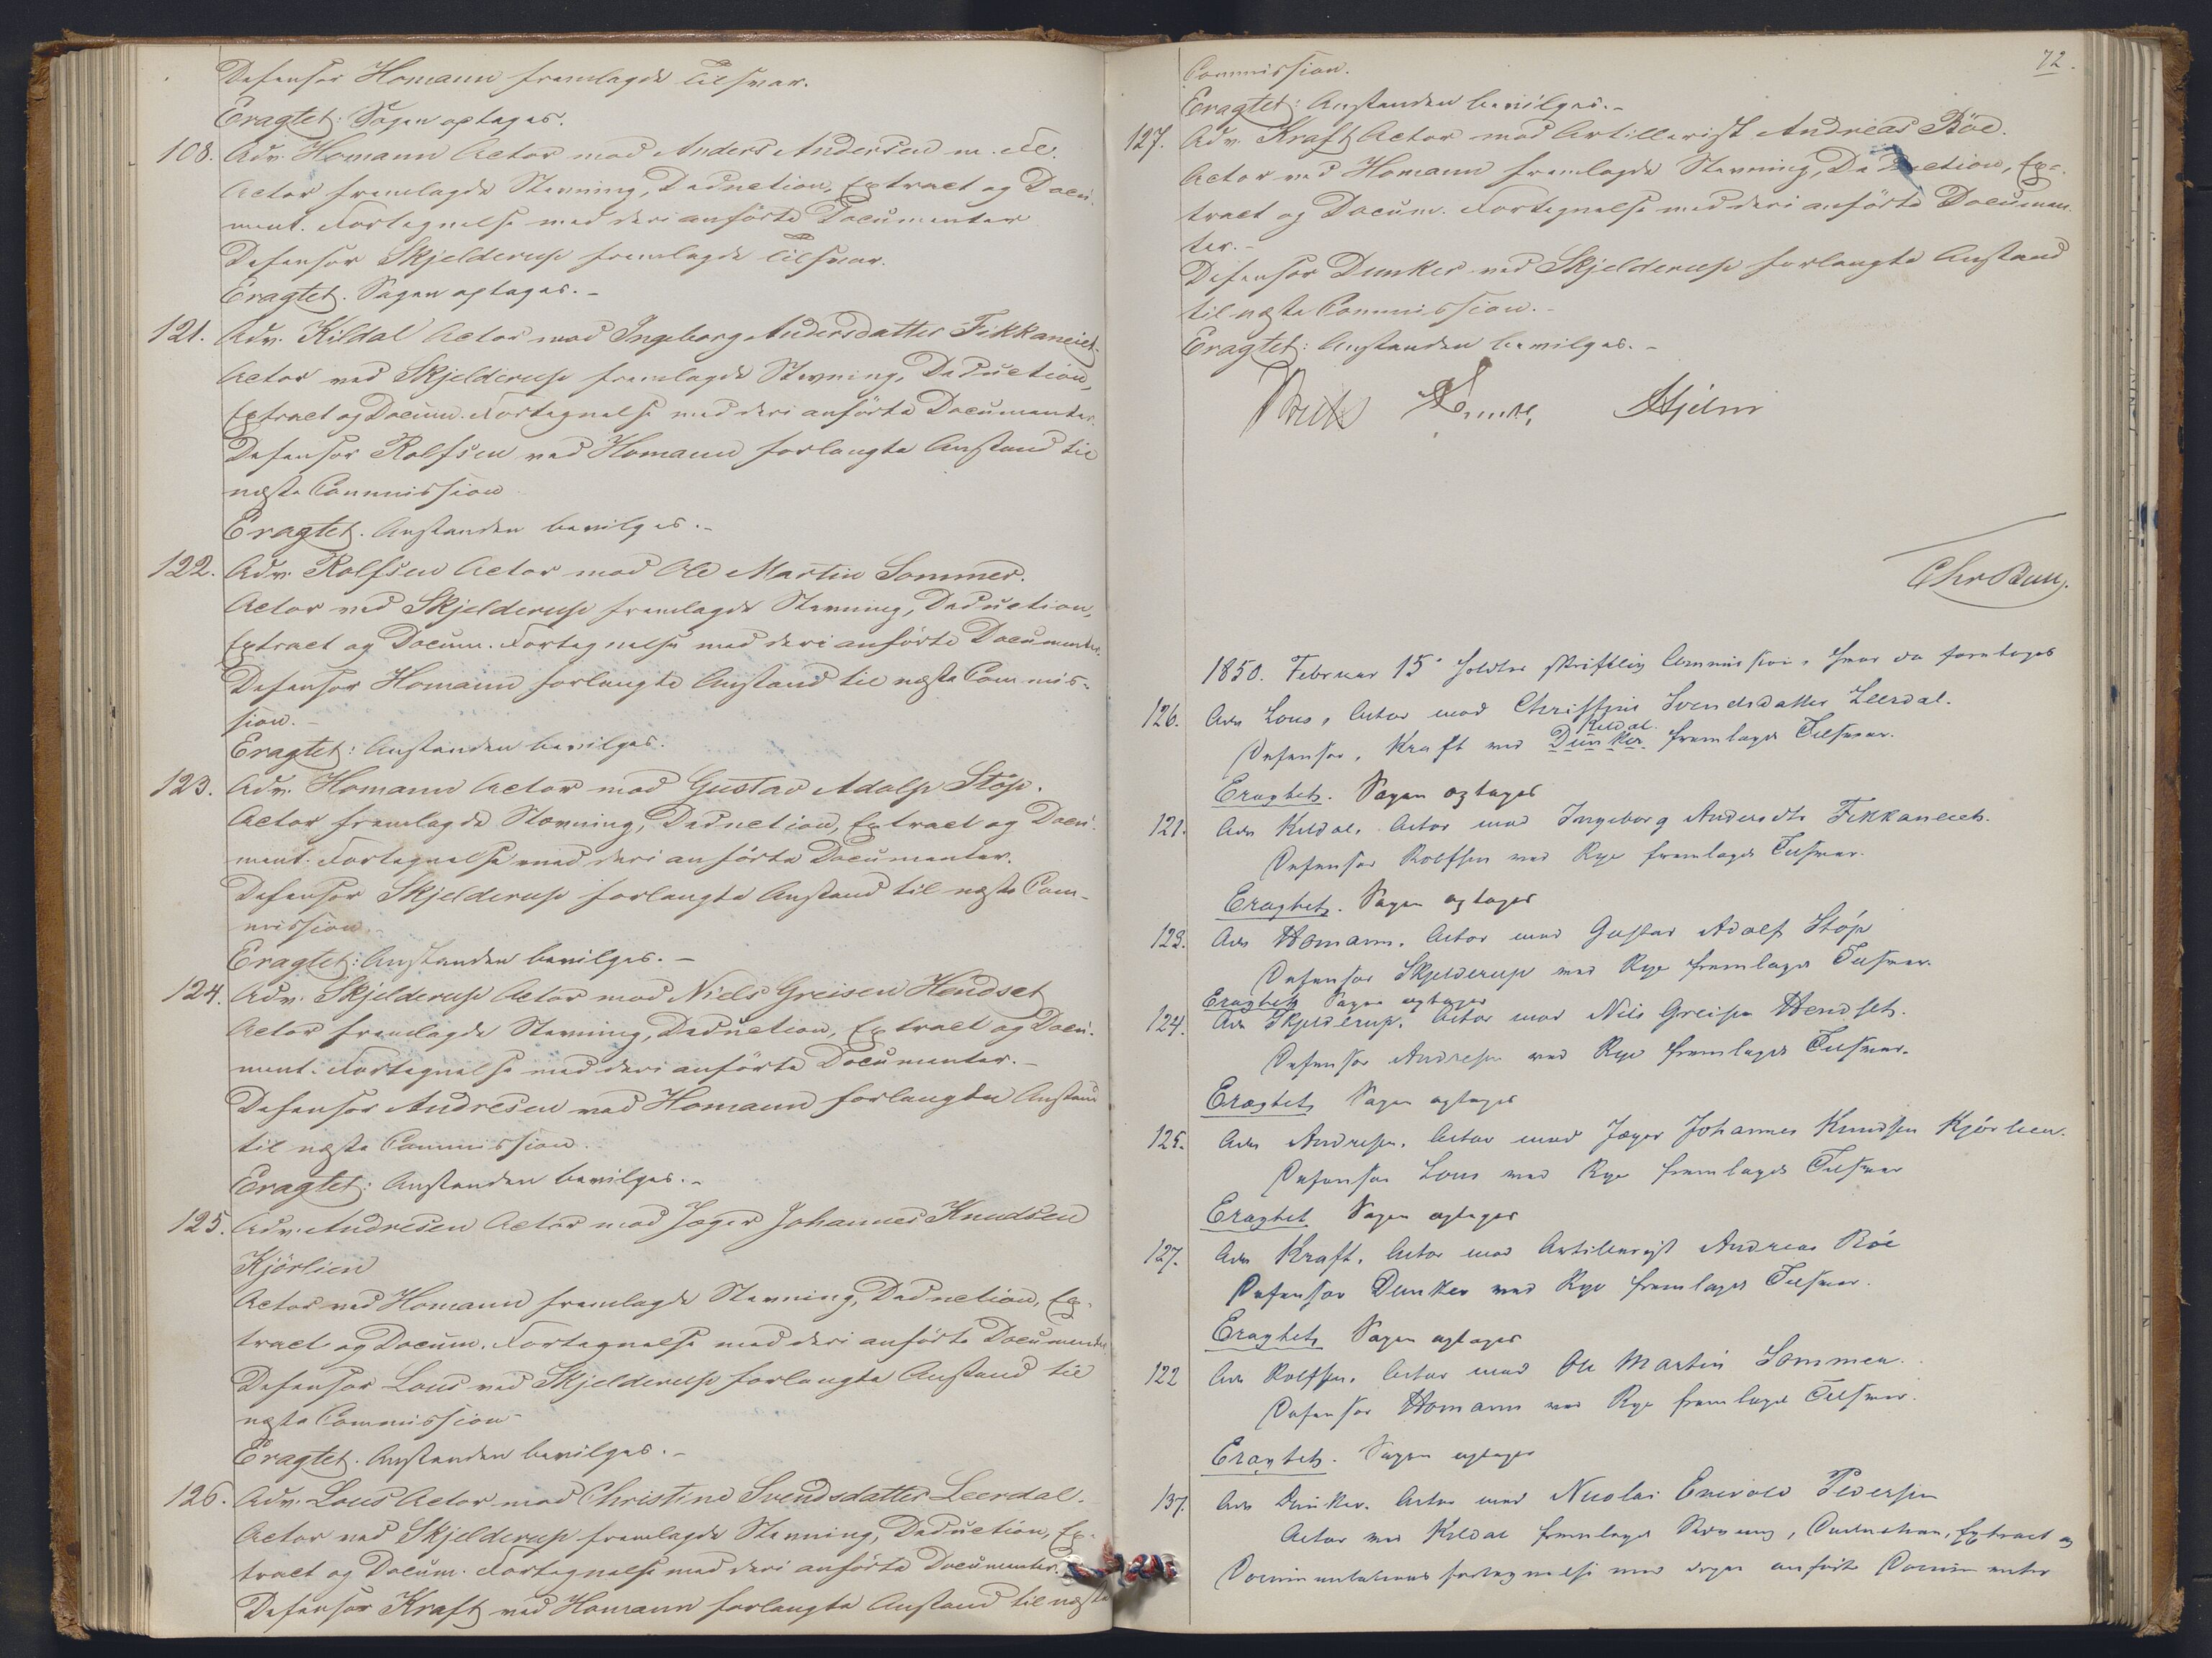 Defensor Homann fremlagde Tilsvar.
Eragtet: Sagen optages.
108. Adv. Homann Actor mod Anders Andersen m. Fl.
Actor fremlagde Stevning, Deduction, Extract og Docu-
ment. Fortegnelse med deri anførte Documenter
Defensor Skjelderup fremlagde Tilsvar.
Eragtet. Sagen optages. -
121. Adv. Kildal Actor mod Ingeborg Andersdatter Fikkaneiet.
Actor ved Skjelderup fremlagde Stevning, Deduction,
Extract og Docum. Fortegnelse med deri anførte Documenter.
Defensor Rolfsen ved Homann forlangte Anstand til
næste Commission
Eragtet. Anstanden bevilges. -
122. Adv. Rolfsen Actor mod Ole Martin Sommer.
Actor ved Skjelderup fremlagde Stevning, Deduction,
Extract og Docum. Fortegnelse med deri anførte Documenter.
Defensor Homann forlangte Anstand til næste Commis-
sion. -
Eragtet: Anstanden bevilges.
123. Adv. Homann Actor mod Gustav Adolp Støp.
Actor fremlagde Stevning, Deduction, Extract og Docu-
ment. Fortegnelse med deri anførte Documenter.
Defensor Skjelderup forlangte Anstand til næste Com-
mission.
Eragtet: Anstanden bevilges. -
124. Adv. Skjelderup Actor mod Niels Greisen Hendset
Actor fremlagde Stevning, Deduction, Extract og Docu-
ment. Fortegnelse med deri anførte Documenter. -
Defensor Andresen ved Homann forlangte Anstand
til næste Commission.
Eragtet: Anstanden bevilges. -
125. Adv. Andresen Actor mod Jæger Johannes Knudsen
Kjörlien
Actor ved Homann fremlagde Stevning, Deduction, Ex-
tract og Docum. Fortegnelse med deri anførte Documenter
Defensor Lous ved Skjelderup forlangte Anstand til
næste Commission -
Eragtet. Anstanden bevilges. -
126. Adv. Lous Actor mod Christine Svendsdatter Leerdal.
Actor ved Skjelderup fremlagde Stevning, Deduction, Ex-
tract og Docum. Fortegnelse med deri anførte Documenter.
Defensor Kraft ved Homann forlangte Anstand til næste
72.
Commission.
Eragtet: Anstanden bevilges. -
127. Adv. Kraft Actor mod Artillerist Andreas Böe.
Actor ved Homann fremlagde Stevning, Deduction, Ex-
tract og Docum. Fortegnelse med deri anførte Documen-
ter. -
Defensor Dunker ved Skjelderup forlangte Anstand
til næste Commission. -
Eragtet: Anstanden bevilges. -
Hjelm
1850. Februar 15de holdtes skriftlig Commission, hvor da foretoges
126. Adv Lous, Actor mod Christine Svendsdatter Leerdal.
Kildal
Defensor, Kraft ved Dunker fremlagde Tilsvar.
Eragtet. Sagen optages
121. Adv Kildal, Actor mod Ingeborg Andersdtr Fikkaneiet.
Defensor Rolfsen ved Rye fremlagde Tilsvar.
Eragtet. Sagen optages
123. Adv Homann, Actor mod Gustav Adolf Støp
Defensor Skjelderup ved Rye fremlagde Tilsvar.
Eragtet Sagen optages
124. Adv Skjelderup, Actor mod Nils Greisen Hendset.
Defensor Andresen ved Rye fremlagde Tilsvar.
Eragtet Sagen optages
125. Adv Andresen, Actor mod Jæger Johannes Knudsen Kjörlien.
Defensor Lous ved Rye fremlagde Tilsvar
Eragtet Sagen optages
127. Adv Kraft, Actor mod Artillerist Andreas Böe
Defensor Dunker ved Rye fremlagde Tilsvar.
Eragtet Sagen optages
122 Adv Rolfsen, Actor mod Ole Martin Sommer.
Defensor Homann ved Rye fremlagde Tilsvar.
Eragtet. Sagen optages
137. Adv Dunker. Actor mod Nicolai Enevold Pedersen
Actor ved Kildal fremlagde Stevning, Deduction, Extract og
Documentations fortegnelse med deri anførte Documenter